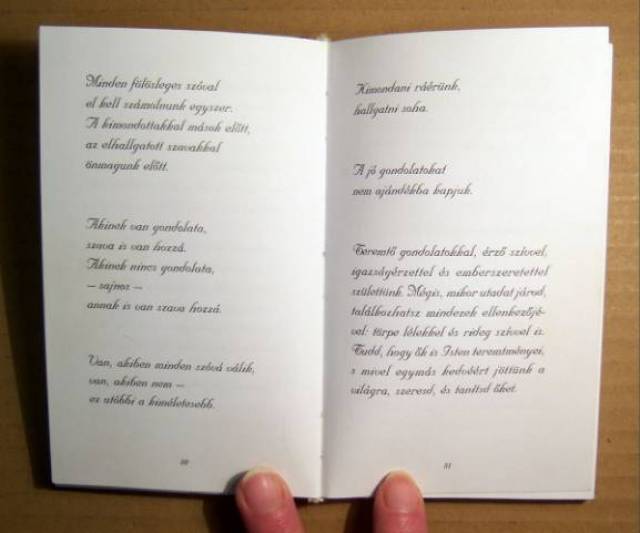 Minden fölösleges szóval
el kell számolnunk egyszer.
A kimondottakkal mások előtt,
az elhallgatott szavakkal
önmagunk előtt.
Akinek van gondolata,
szava is van hozzá.
Akinek nincs gondolata,
– sajnos –
annak is van szava hozzá.
Van, akiben minden szóvá válik,
van, akiben nem –
ez utóbbi a kíméletesebb.
30
Kimondani ráérünk,
hallgatni soha.
A jó gondolatokat
nem ajándékba kapjuk.
Teremtő gondolatokkal, érző szívvel,
igazságérzettel és emberszeretettel
születtünk. Mégis, mikor utadat járod,
találkozhatsz mindezek ellenkezőjé-
vel: törpe lélekkel és rideg szívvel is.
Tudd, hogy ők is Isten teremtményei,
s mivel egymás kedvéért jöttünk a
világra, szeresd, és tanítsd őket.
31